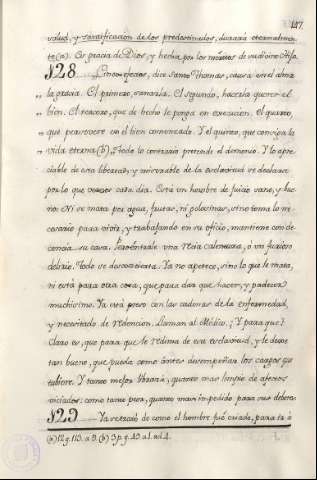 147.
salud, y santificacion de los predestinados, durará eternalmen-
te (a). Es gracia de Dios, y hecha por los méritos de su divino Hijo.
§28 Cinco efectos, dice Santo Thomas, causa en el alma
la gracia. El primero, sanarla. El segundo, hacerla querer el
bien. El tercero, que de hecho le ponga en execucion. El quarto,
que persevere en el bien comenzado. Y el quinto, que consiga la
vida eterna (b). Todo lo contrario pretende el demonio. Y lo apre-
ciable de esta libertad, y miserable de la esclavitud se declara
por lo que vemos cada dia. Está un hombre de juicio sano, y bue-
no: Ni se mata por agua, frutas, ni golosinas, sino toma lo ne-
cesario para vivir, y trabajando en su oficio, mantiene con de-
cencia su casa. Pero éntrale una recia calentura, ó un furioso
delirio. Todo se desconcierta. Ya no apetece, sino lo que le mata,
ni está para otra cosa, que para dar que hacer, y padecer
muchisimo. Ya está preso con las cadenas de la enfermedad,
y necesitado de redencion. Llaman al Médico. ¿Y para que?
Claro es, que para que le redima de esa esclavitud, y le dexe
tan bueno, que pueda como ántes desempeñar los cargos que
tubiere. Y tanto mejor obrará, quanto mas limpio de afectos
viciados: como tanto peor, quanto mas impedido para sus deberes.
§29 Ya se trató de como el hombre fué criado, para la
(a) 12 q. 113. a 9. (b) 3 p. q. 49 a 1. ad. 4.